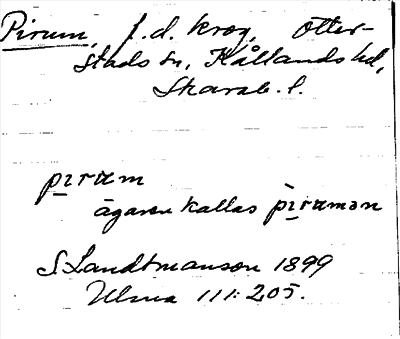 Pirum, f.d. krog, Otter-
stads sn, Kållands hd,
Skarab. l.
pıram
ägaren kallas pìramən
S Landtmanson 1899
Ulma 111:205.